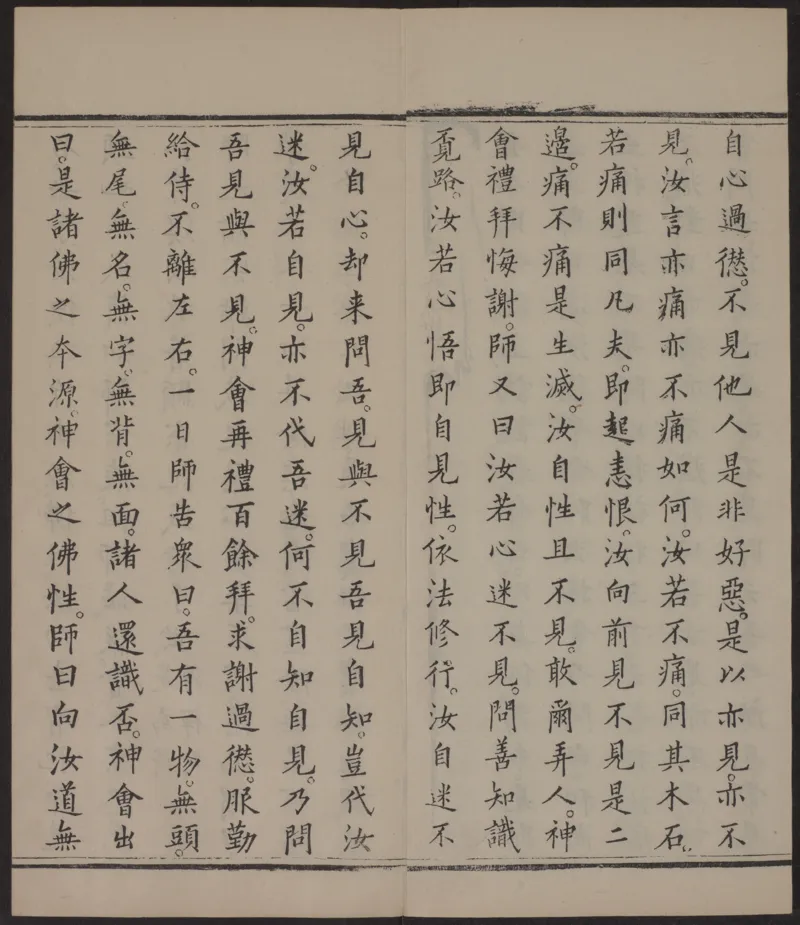 自心過𠎝。不見他人是非好惡。是以亦見。亦不
見。汝言亦痛亦不痛如何。汝若不痛。同其木石。
若痛則同凡夫。即起恚恨。汝向前見不見是二
邊。痛不痛是生滅。汝自性且不見。敢爾弄人。神
會禮拜悔謝。師又曰汝若心迷不見。問善知識
覔路。汝若心悟即自見性。依法修行。汝自迷不
見自心。却来問吾。見與不見吾見自知。豈代汝
迷。汝若自見。亦不代吾迷。何不自知自見。乃問
吾見與不見。神會再禮百餘拜。求謝過𠎝。服勤
給侍。不離左右。一日師告衆曰。吾有一物。無頭。
無尾。無名。無字。無背。無面。諸人還識否。神會出
曰。是諸佛之本源。神會之佛性。師曰向汝道無